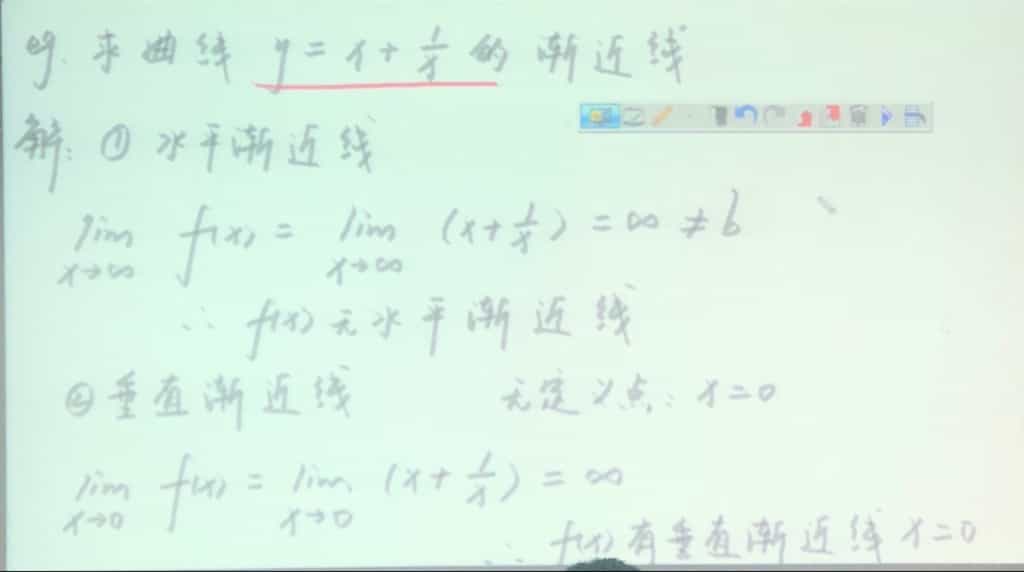 eg. 求曲线 y = x + 1/x 的渐近线
解: ① 水平渐近线
lim x→∞ f(x) = lim x→∞ (x + 1/x) = ∞ ≠ b
∴ f(x) 无水平渐近线
② 垂直渐近线 无定义点: x = 0
lim x→0 f(x) = lim x→0 (x + 1/x) = ∞
∴ f(x) 有垂直渐近线 x = 0